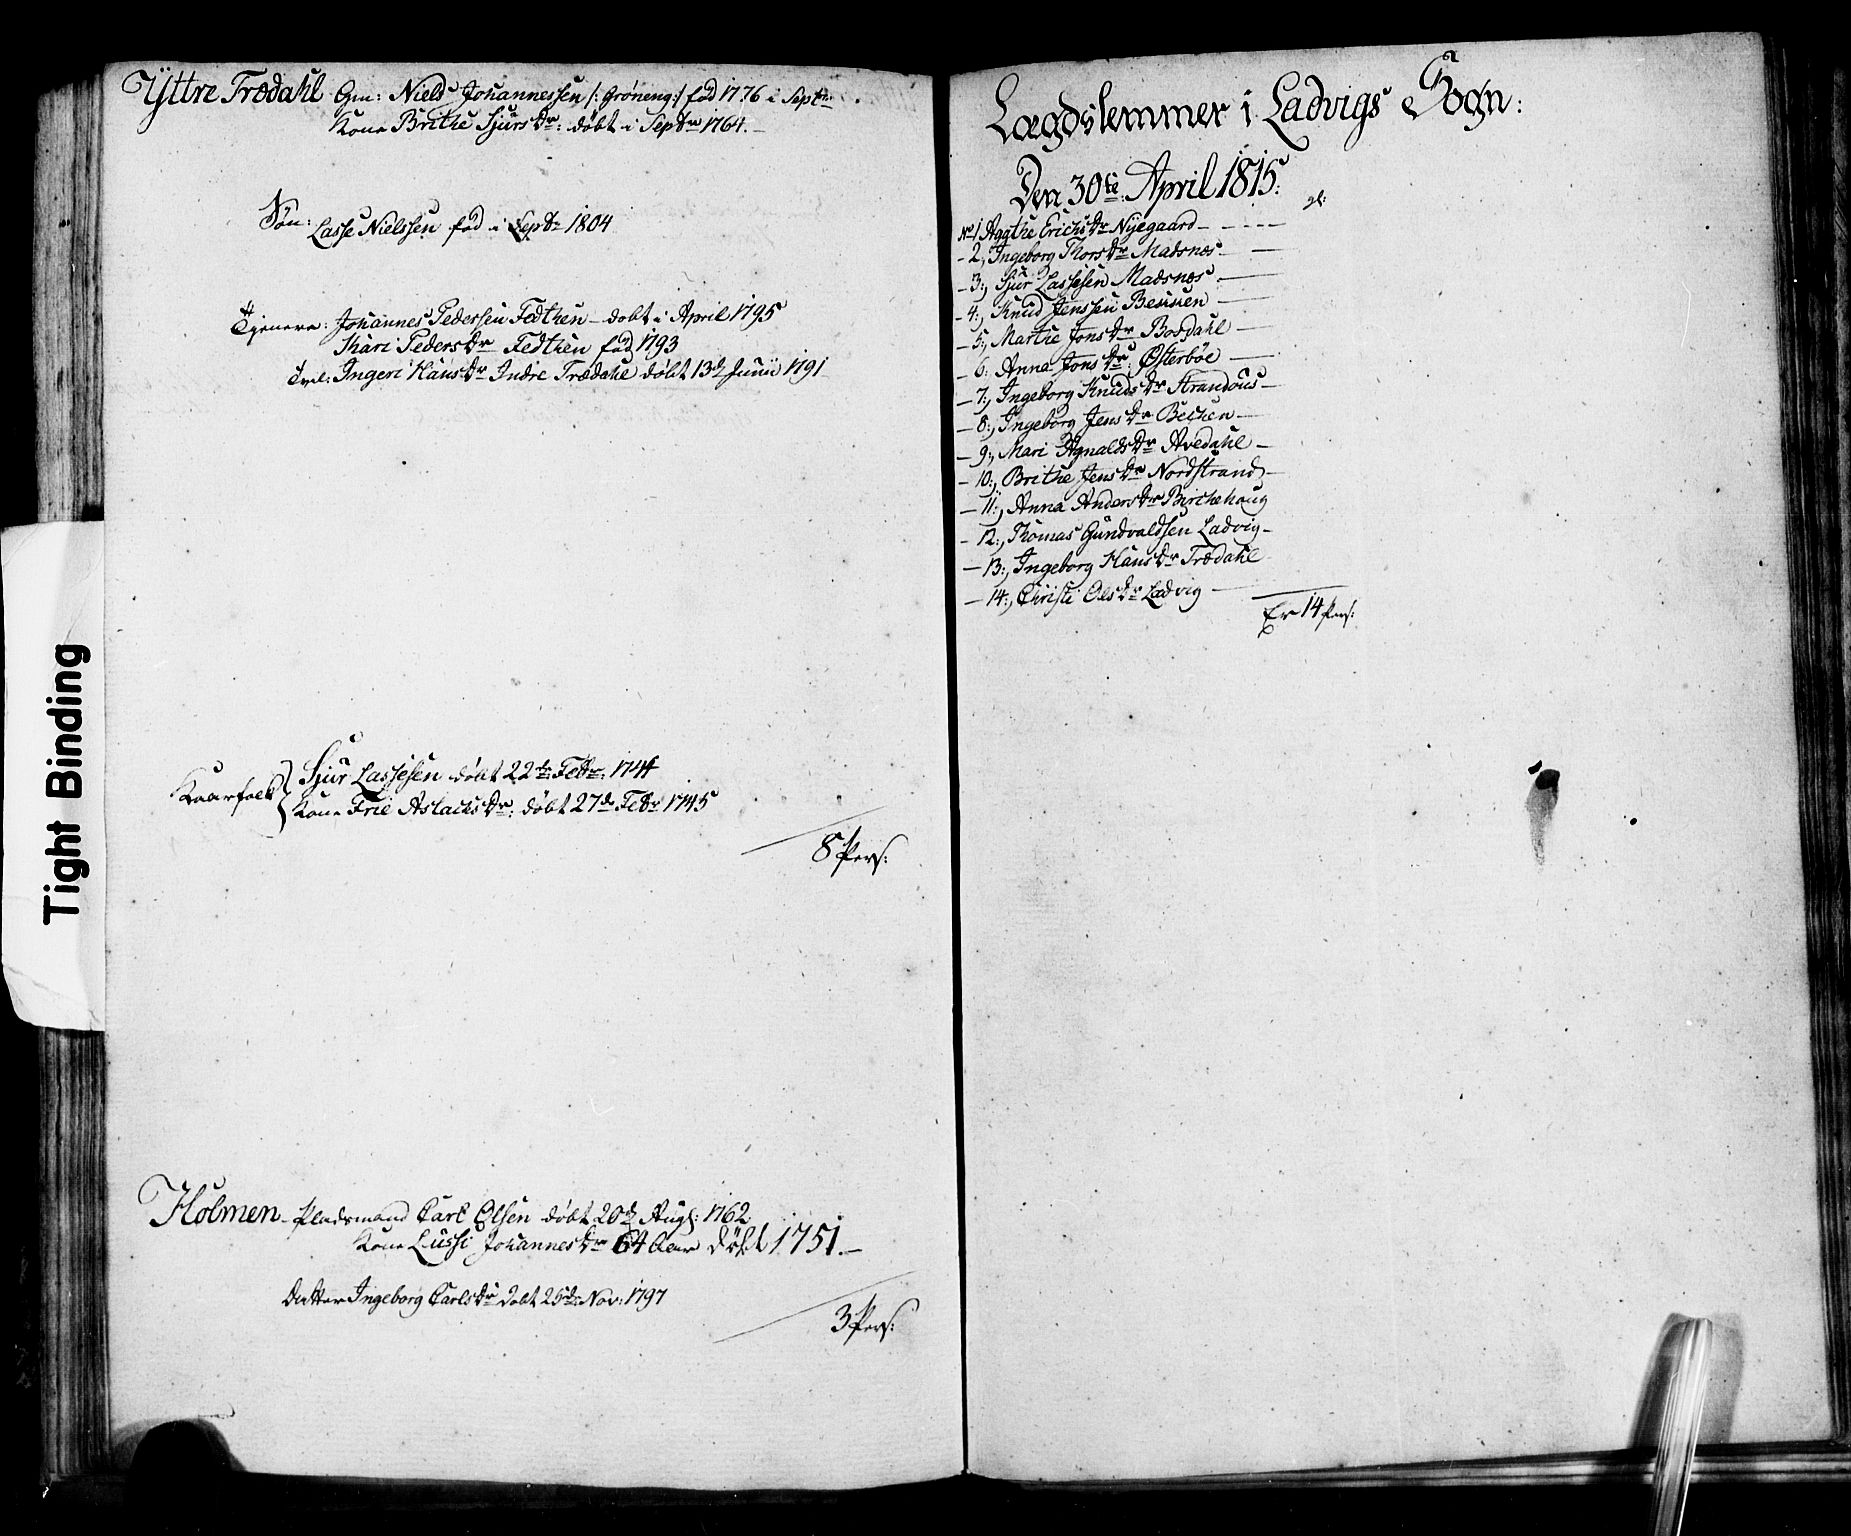 Yttre Trædahl Gm: Niels Johannessen /: Grøneng:/ fød 1776 i Septr
Kone Brithe Sjurs Dr: døbt i Septr 1764.
Søn: Lasse Nielssen fød i Septr 1804
Tjenere: Johannes Pedersen Fedthen døbt i April 1795
Mari Peders Dr Fedthen fød 1793
Ingeri Hans Dr Indre Trædahl døbt 13de Junii 1791
Kaarfolk
Sjur Lassesen døbt 22de Febr: 1744
Kone Frie Aslachs Dr: døbt 27de Febr 1745
8 Pers:
Holmen Pladsmand Carl Olsen døbt 20de Aug: 1762
Kone Lussi Johannes Dr 64 Aar døbt 1751.
Datter Ingeborg Carls Dr døbt 26de Nov: 1797
3 Pers:
Tight Binding
Lægdslemmer i Ladvigs Sogn:
Den 30te April 1815:
No 1 Agthe Erichs Dr Nyegaard
2, Ingeborg Thors Dr Madsnæs
3:, Sjur Lassesen Madsnæs
4:, Knud Jenssen Bennen
5:, Marthe Jons Dr Bordahl
6:, Anna Jons Dr: Østerbøe
7:, Ingeborg Knuds Dr Strandous
8:, Ingeborg Jens Dr Bechen
9:, Mari Agnalds Dr Avedahl
10:, Brithe Jens Dr Nordstrand
11:, Anna Anders Dr Birchehaug
12:, Thomas Gundvaldsen Ladvig
13:, Ingeborg Hans Dr Trædahl
14:, Christi Ols Dr Ladvig
Er 14 Pers: